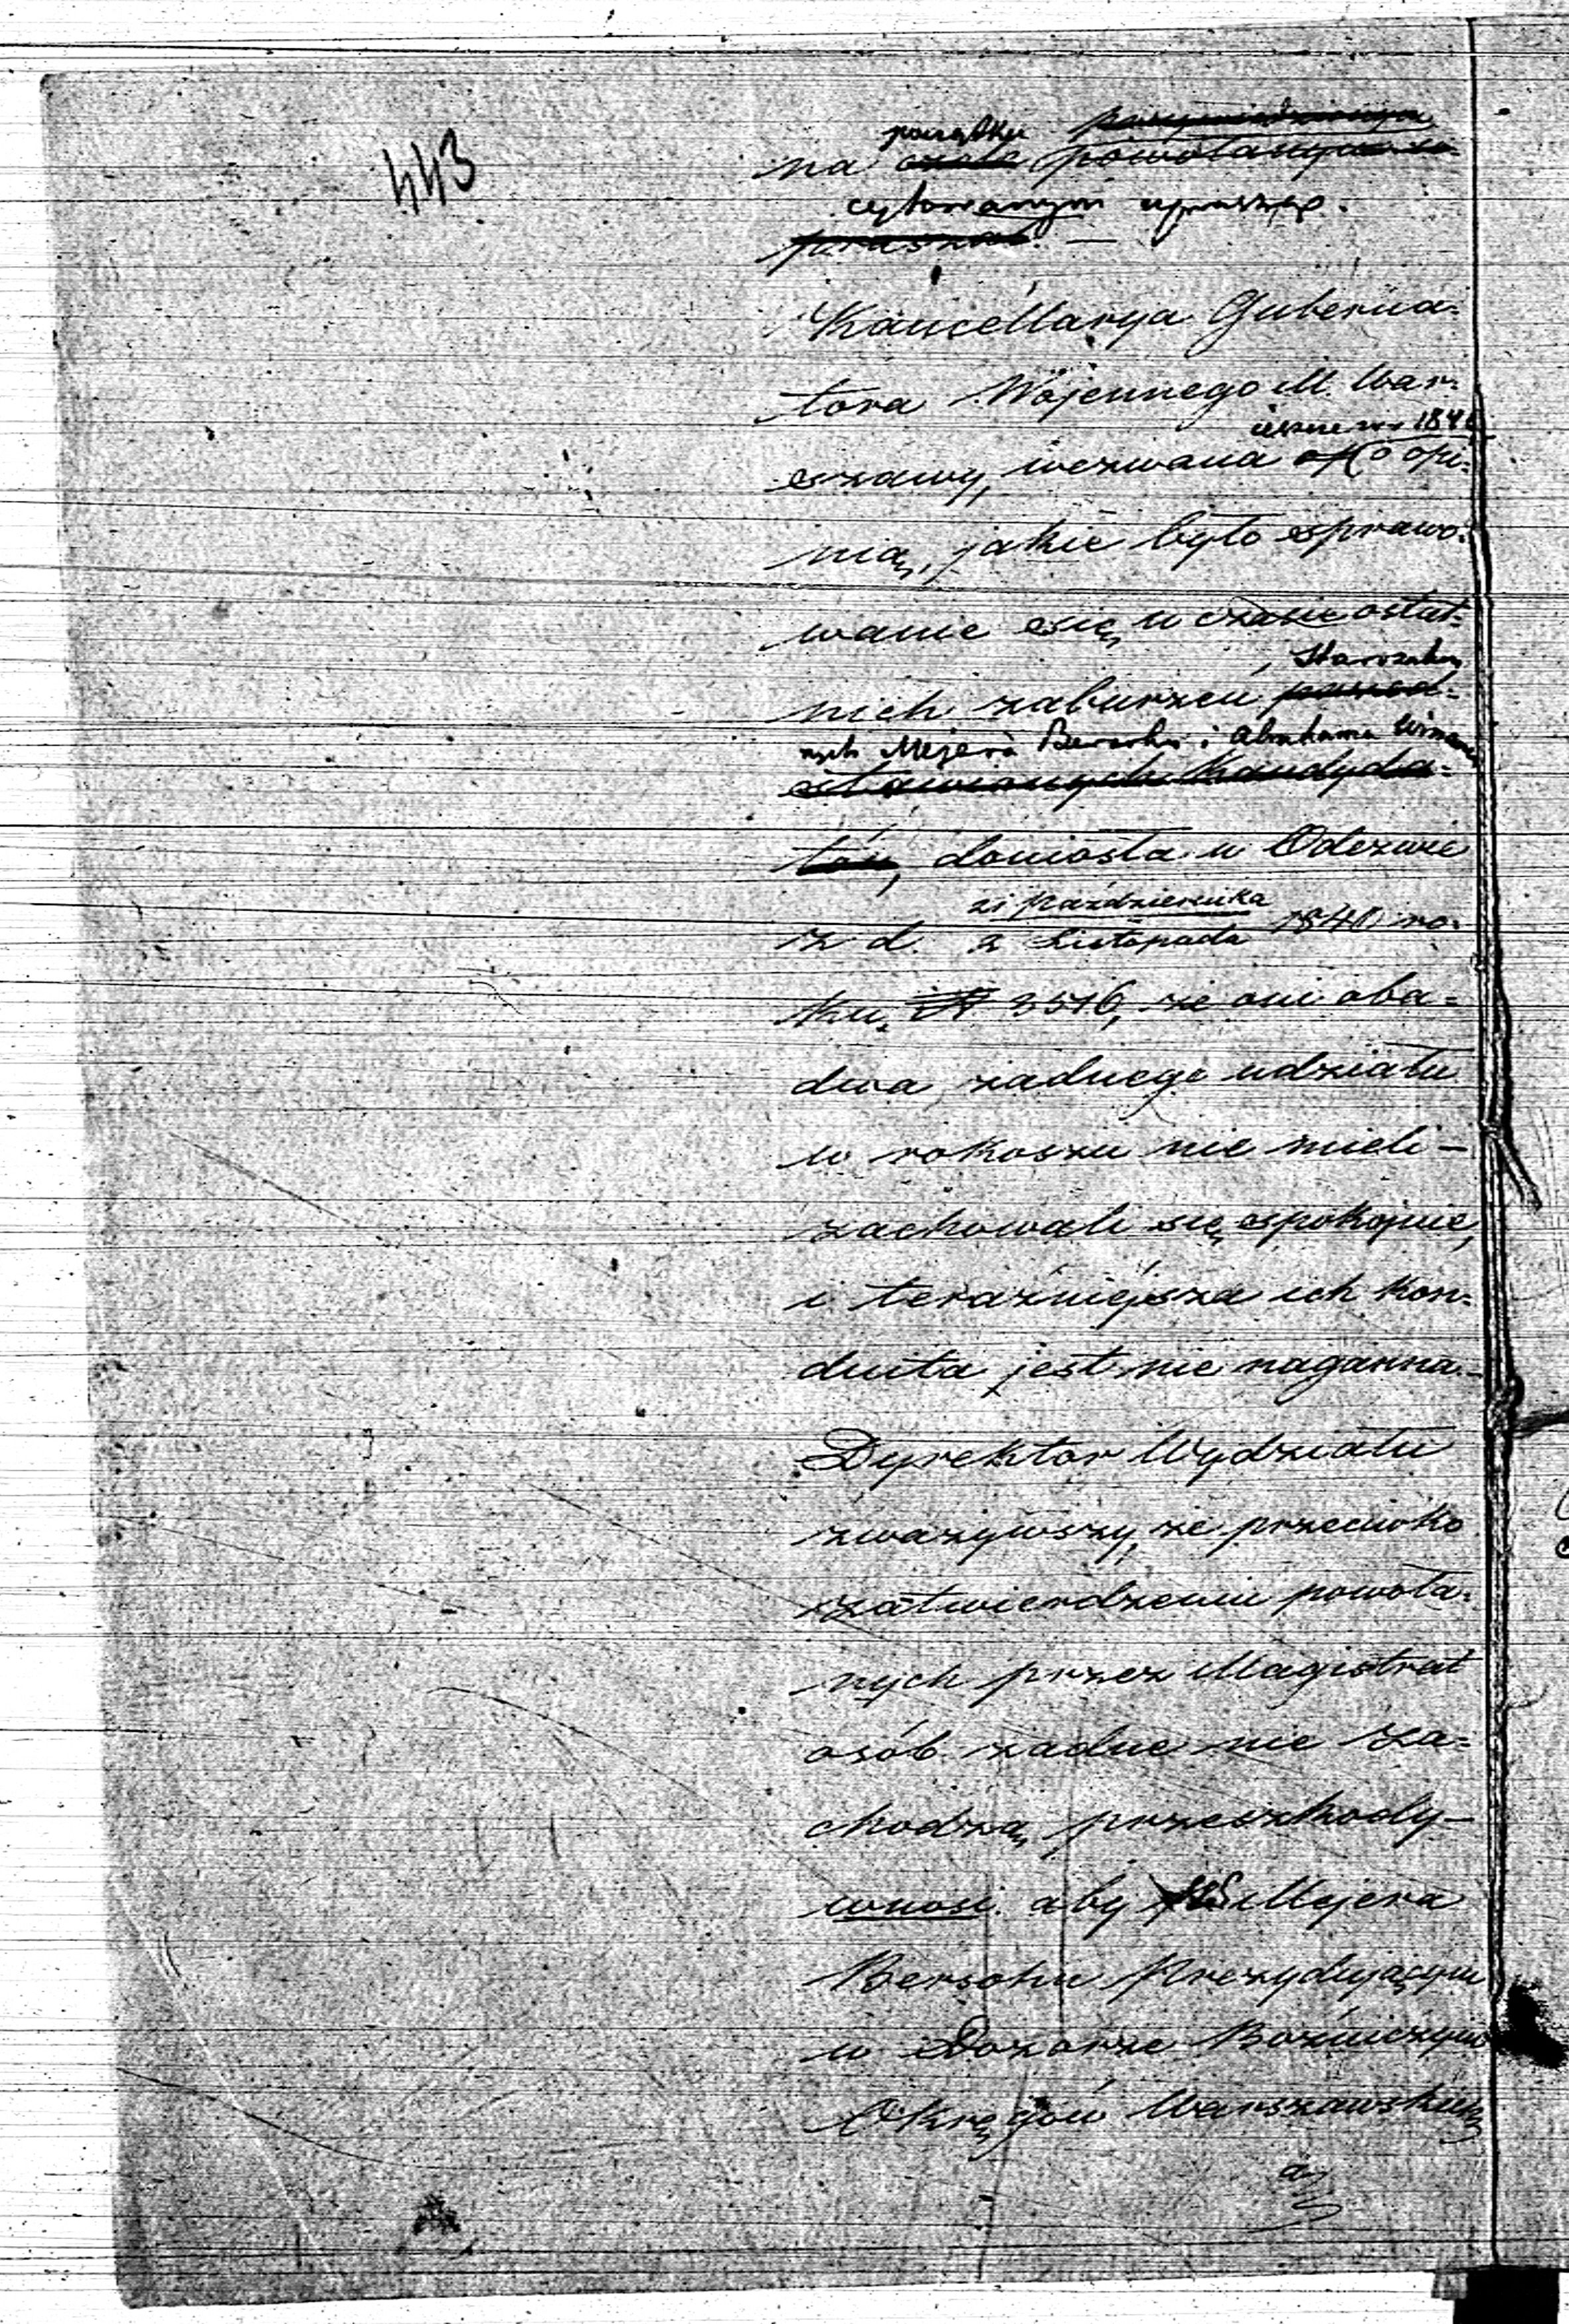 443
początku
na czele powołanym
cytowanym
Kancellarya Guberna=
tora Wojennego M. War=
jeszcze w r 1841
szawy, wezwana o opi=
nią, jakie było sprawo=
wanie się w czasie ostat=
Starozakon
nich zaburzeń przed=
nych Mejera Bersohn i Abrahama Winawer
stawionych Kandyda=
tów, doniosła w Odezwie
21 października
z d. 2 Listopada 1841 ro=
ku, № 3516, że oni oba=
dwa żadnego udziału
w rokoszu nie mieli –
zachowali się spokojnie,
i teraźniejsza ich kon=
duita jest nie naganna. –
Dyrektor Wydziału
zważywszy, że przeciwko
zatwierdzeniu powoła=
nych przez Magistrat
osób żadne nie za=
chodzą przeszkody –
wnosi. aby Mejera
Bersohn Prezydującym
w Dozorze Bożniczym
Okręgów Warszawskich